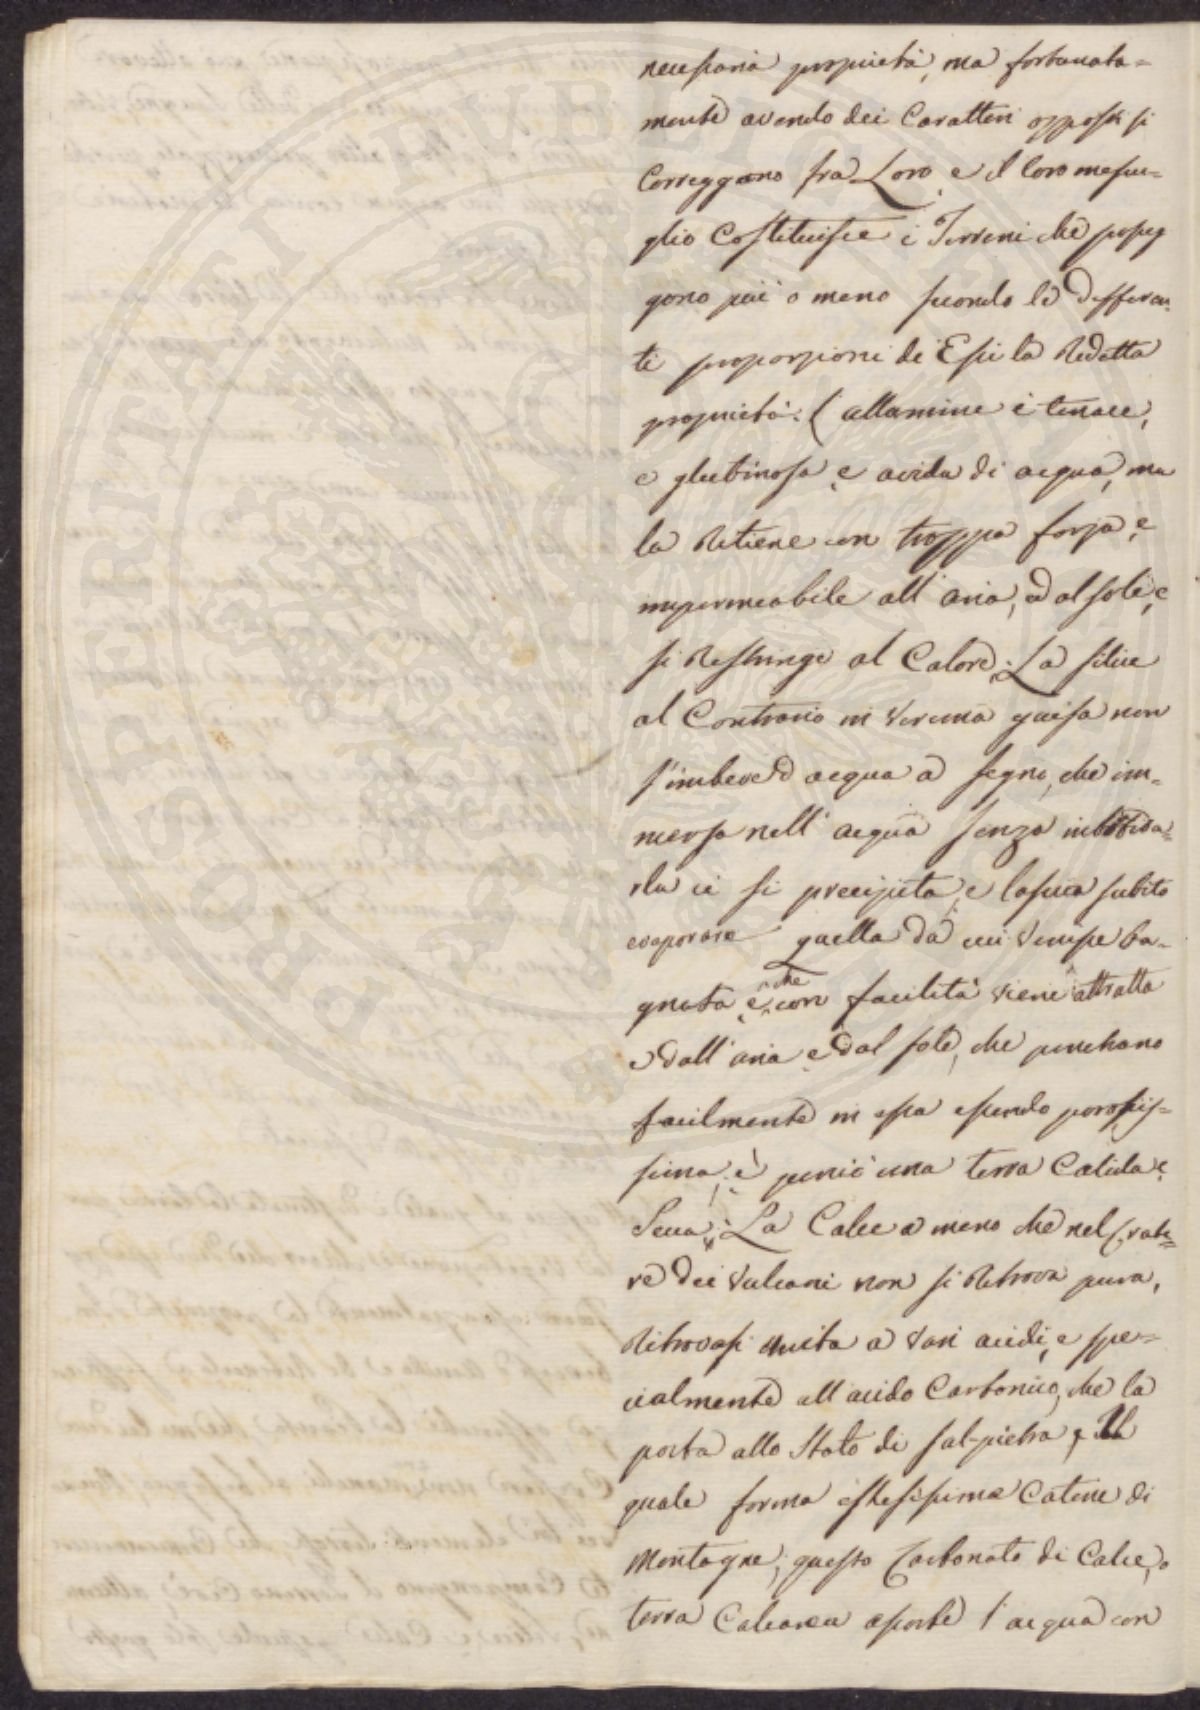 necessaria proprietà, ma fortunata=
mente avendo dei Caratteri opposti si
Correggono fra Loro e il loro mescu=
glio Costituisce i Terreni che posseg
gono più o meno secondo le differen=
ti proporzioni di Essi la Redetta
proprietà: L'allumine è tenace,
e glutinosa e avida di acqua, ma
la Ritiene con troppa forza, e
impermeabile all'aria, ed al sole, e
si Restringe al Calore. La silice
al Contrario in veruna guisa non
s'imbeve d'acqua a segno, che im=
mersa nell'acqua senza intorbida=
rla ci si precipita, e lascia subito
evaporare quella da cui venisse ba=
gnata e che con facilità viene attratta
dall'aria e dal sole, che penetrano
facilmente in essa essendo porosis=
sima, è perciò una terra Calida e
Secca. La Calce a meno che nel Crate=
re dei Vulcani non si Ritrova pura,
Ritrovasi unita a vari acidi, e spe=
cialmente all'acido Carbonico, che la
porta allo Stato di sal-pietra, Il
quale forma estesissime Catene di
Montagne, questo Carbonato di Calce, o
terra Calcarea assorbe l'acqua con
PROSPERITATI PVBLICAE